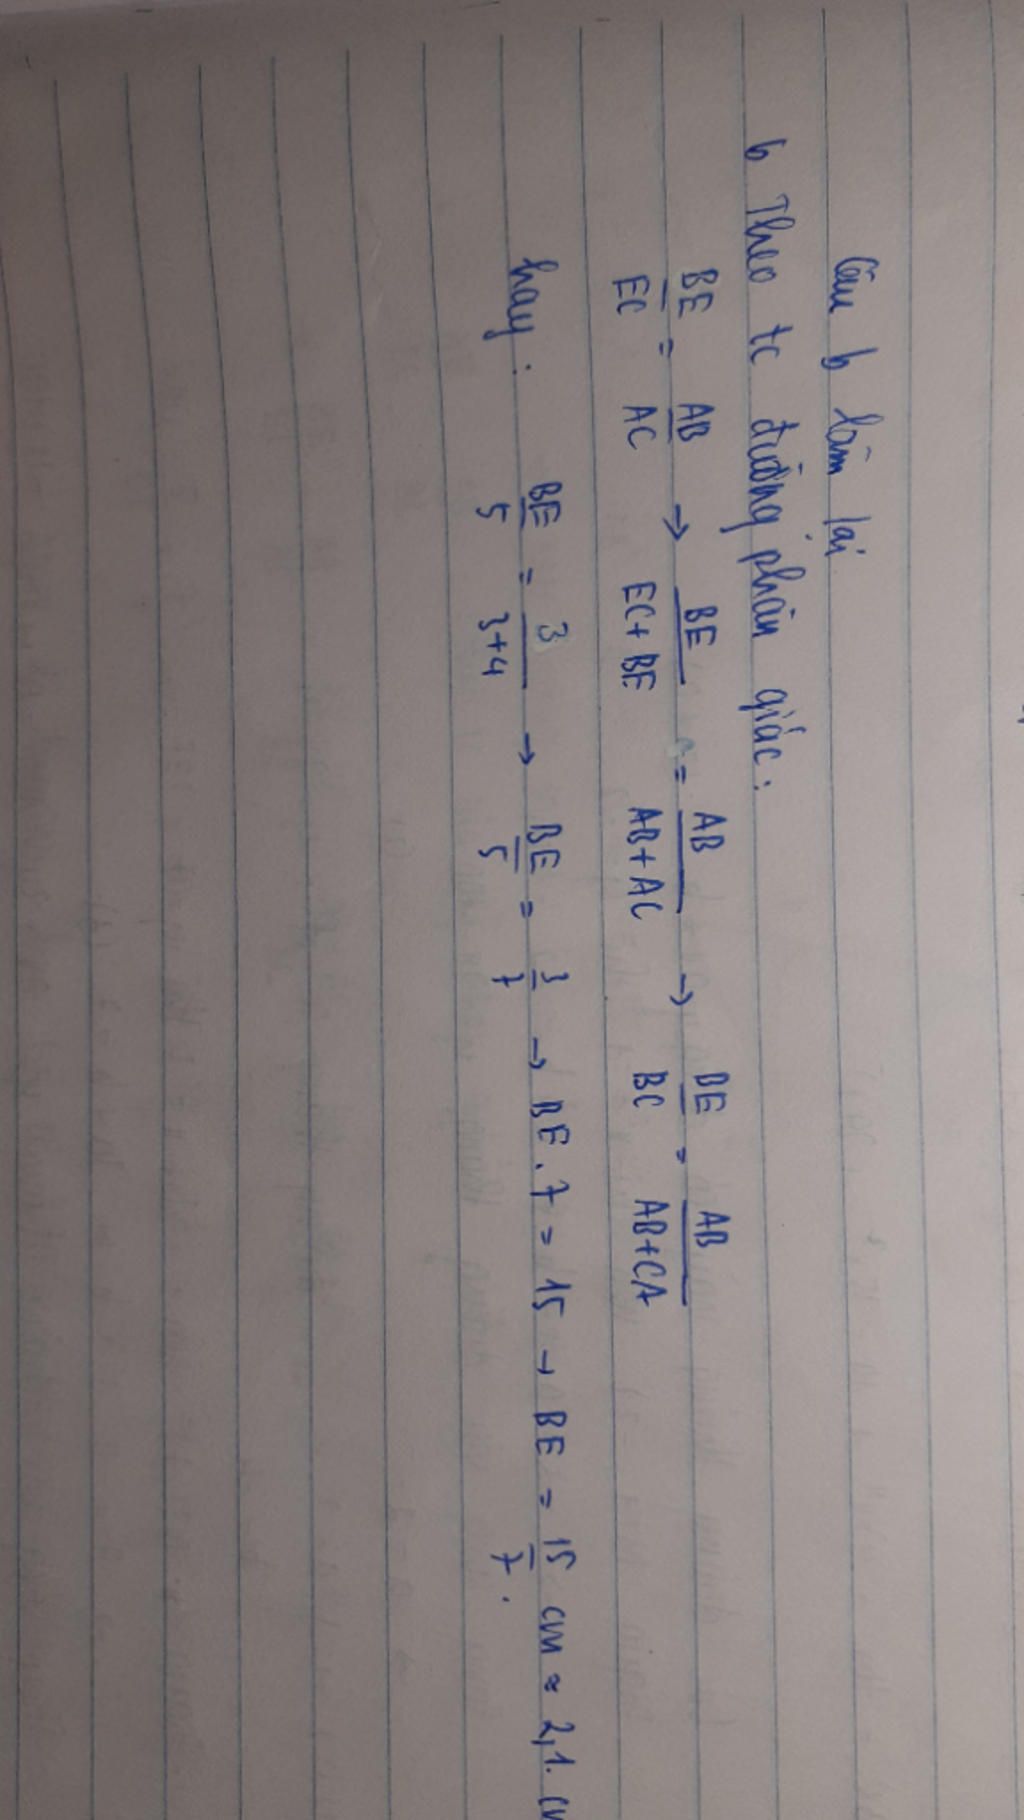 Câu b làm lại
b Theo tc đường phân giác:
BE/EC = AB/AC → BE/EC+BE = AB/AB+AC → BE/BC = AB/AB+CA
hay: BE/5 = 3/3+4 → BE/5 = 3/7 → BE.7 = 15 → BE = 15/7 cm ≈ 2,1.